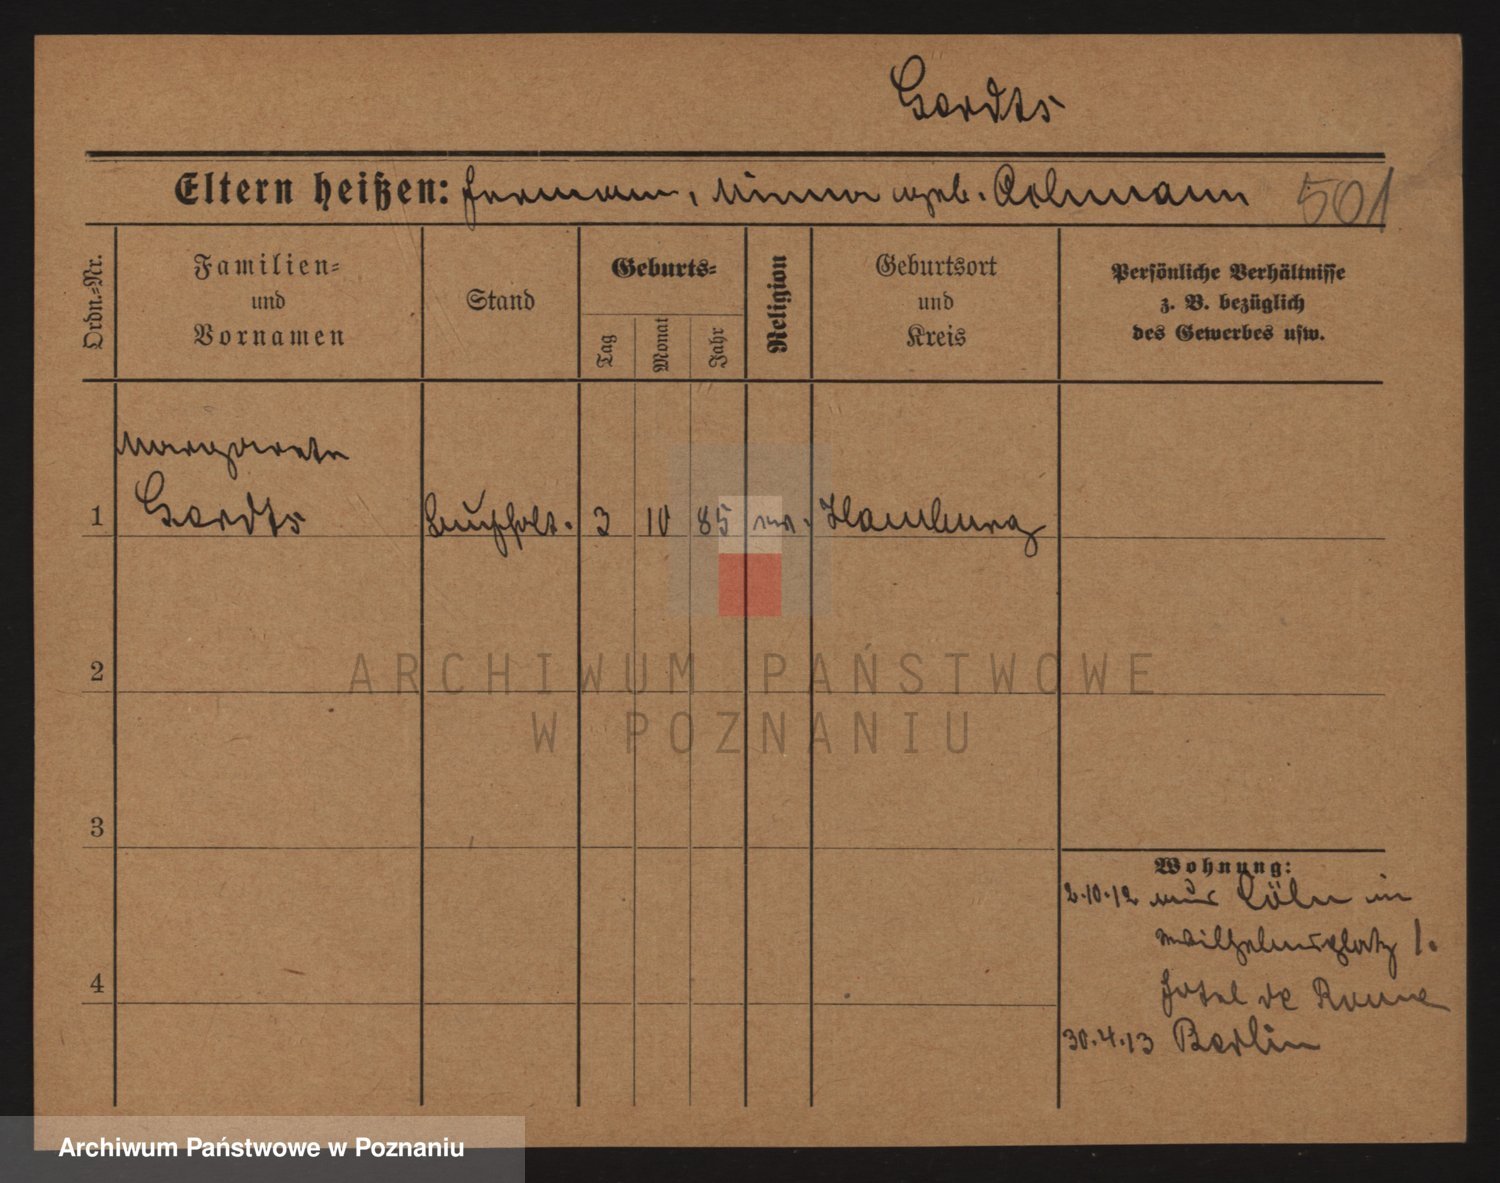 Gerdts
Eltern heißen: Hermann, Minna geb. Rohmann 501
Ordn.-Nr.
Familien-
und
Vornamen
Stand
Geburts-
Tag
Monat
Jahr
Religion
Geburtsort
und
Kreis
Persönliche Verhältnisse
z. B. bezüglich
des Gewerbes usw.
Margarete
1 Gerdts Buchhalt. 3 10 85 ev. Hamburg
2
ARCHIWUM PAŃSTWOWE
W POZNANIU
3
Wohnung:
2.10.12 aus Cöln in
Wilhelmsplatz 1.
Hotel de Rome
4
30.4.13 Berlin
Archiwum Państwowe w Poznaniu